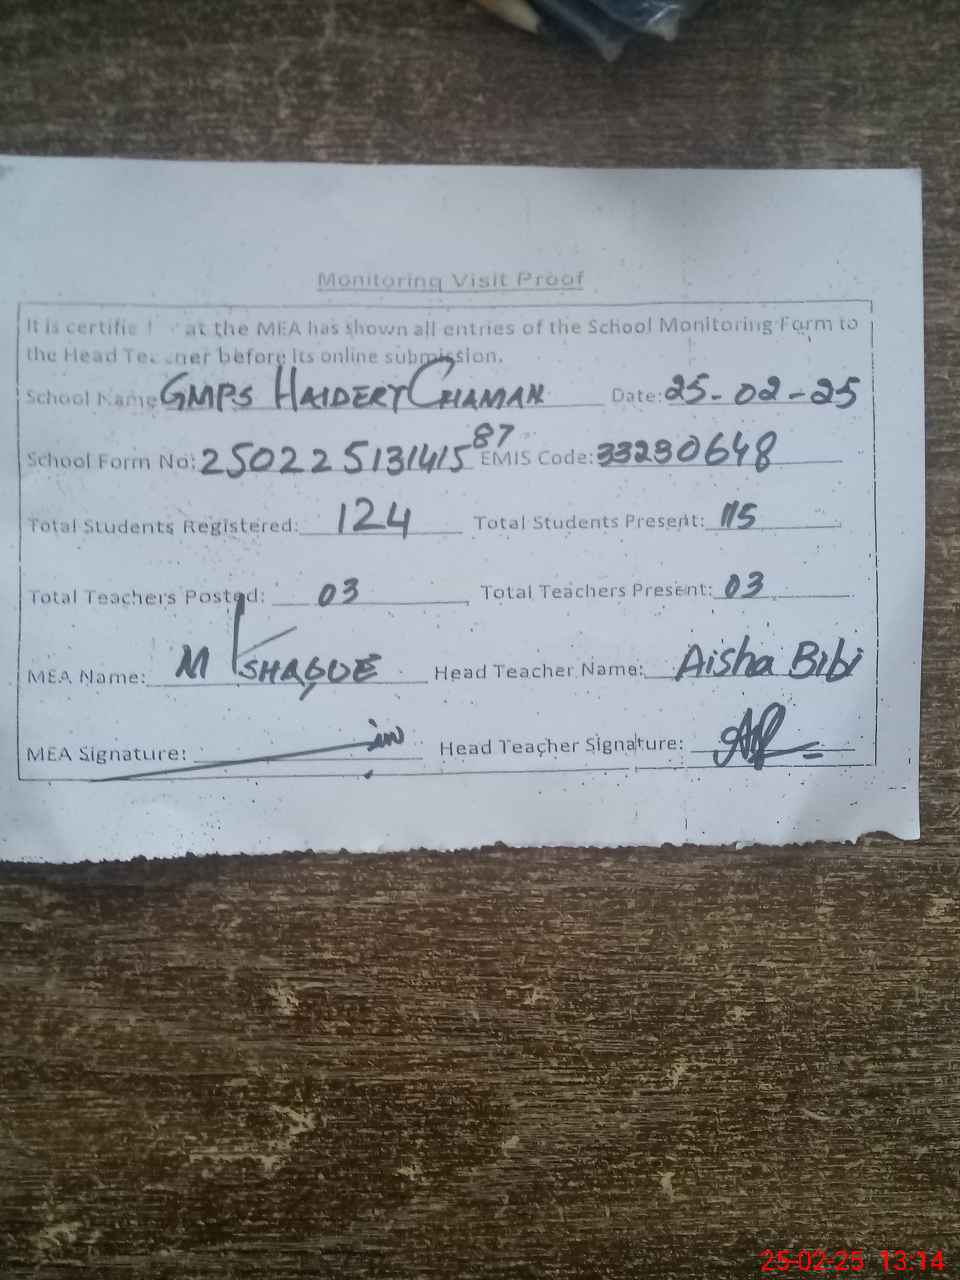 Monitoring Visit Proof
It is certifie at the MEA has shown all entries of the School Monitoring Form to
the Head Teacher before its online submission.
School Name GMPS HAIDERY CHAMAN Date: 25-02-25
School Form No: 25022513141587 EMIS Code: 33230648
Total Students Registered: 124 Total Students Present: 115
Total Teachers Posted: 03 Total Teachers Present: 03
MEA Name: M Head Teacher Name: Aisha Bibi
MEA Signature: Head Teacher Signature:
25-02-25 13:14